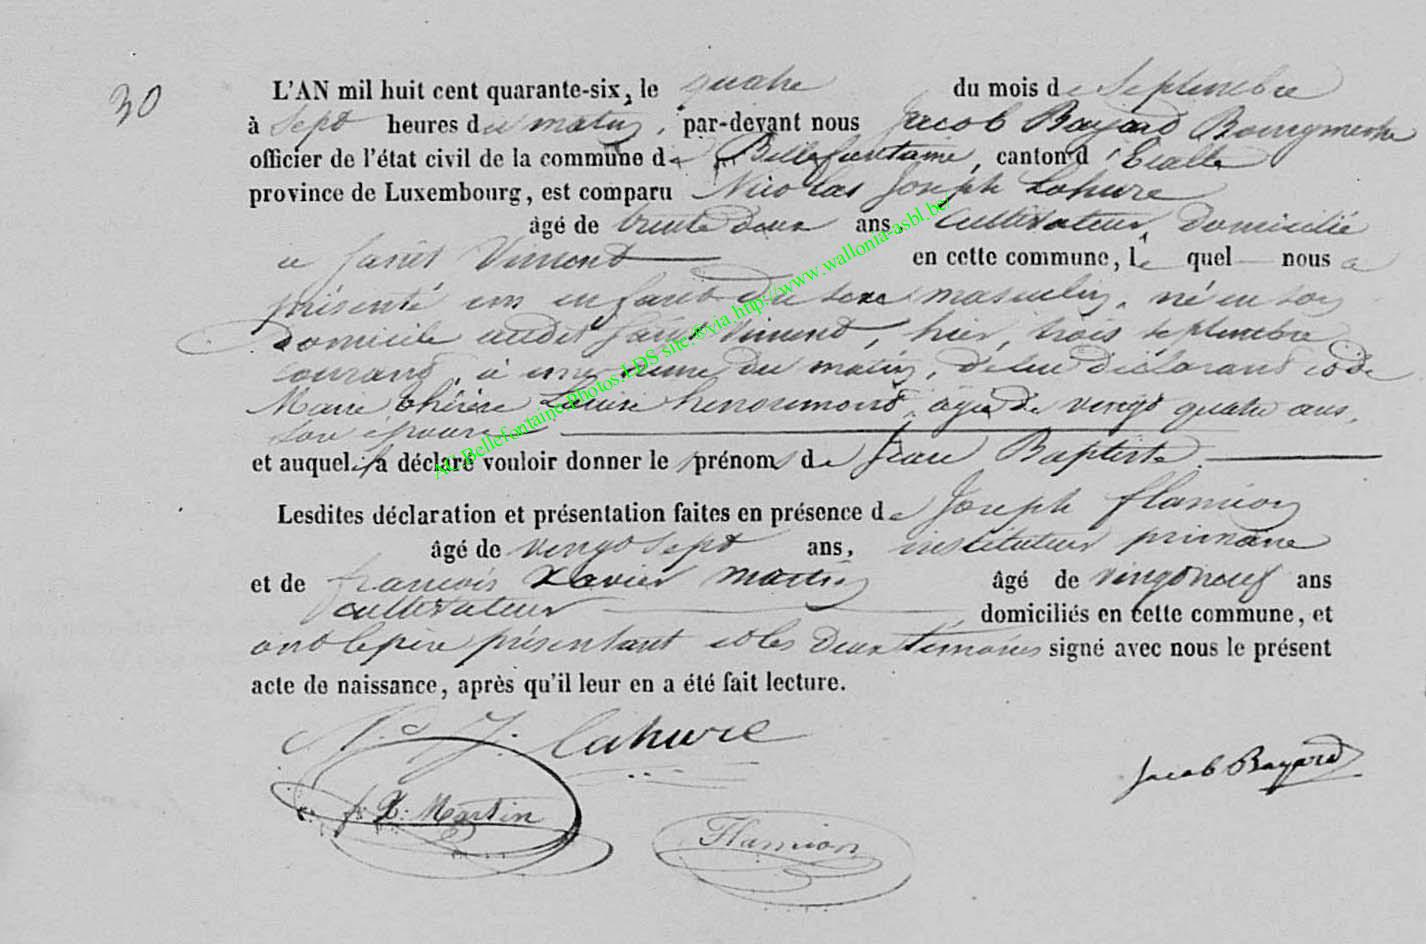 30
L'AN mil huit cent quarante-six, le quatre du mois de Septembre
à Sept heures du matin, par-devant nous Jacob Bayard Bourgmestre
officier de l'état civil de la commune de Bellefontaine, canton d'Etalle
province de Luxembourg, est comparu Nicolas Joseph Lahure
âgé de trente deux ans, cultivateur, domicilié
a Vincent en cette commune, lequel nous a
présenté un enfant du sexe masculin, né en son
domicile audit Vincent, hier, trois septembre
courant, à une heure du matin, de lui déclarant et de
Marie thérèse Louise henoumont, agée de vingt quatre ans,
son épouse
et auquel il a déclaré vouloir donner les prénoms de Jean Baptiste
Lesdites déclaration et présentation faites en présence de Joseph flamion
âgé de vingt sept ans, instituteur primaire
et de francois Xavier martin âgé de vingt neuf ans
cultivateur domiciliés en cette commune, et
ont le père présentant et les deux témoins signé avec nous le présent
acte de naissance, après qu'il leur en a été fait lecture.
N. J. Lahure
Jacob Bayard
f. X. Martin
Flamion
AC.Bellefontaine.Photos.LDS site.©via.http://www.wallonia-asbl.be/